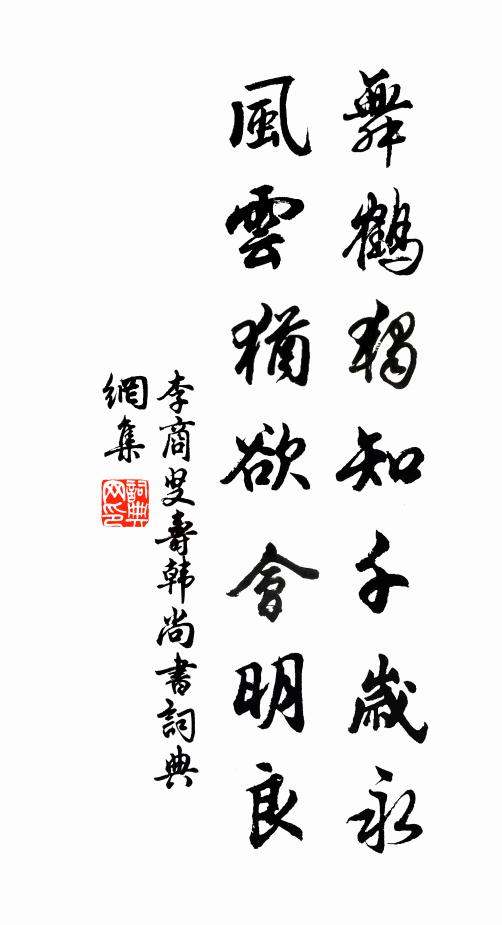 舞鶴獨知千歲永
風雲猶欲會明良
李商叟壽韩尚書詞典
網集
詞典
网印